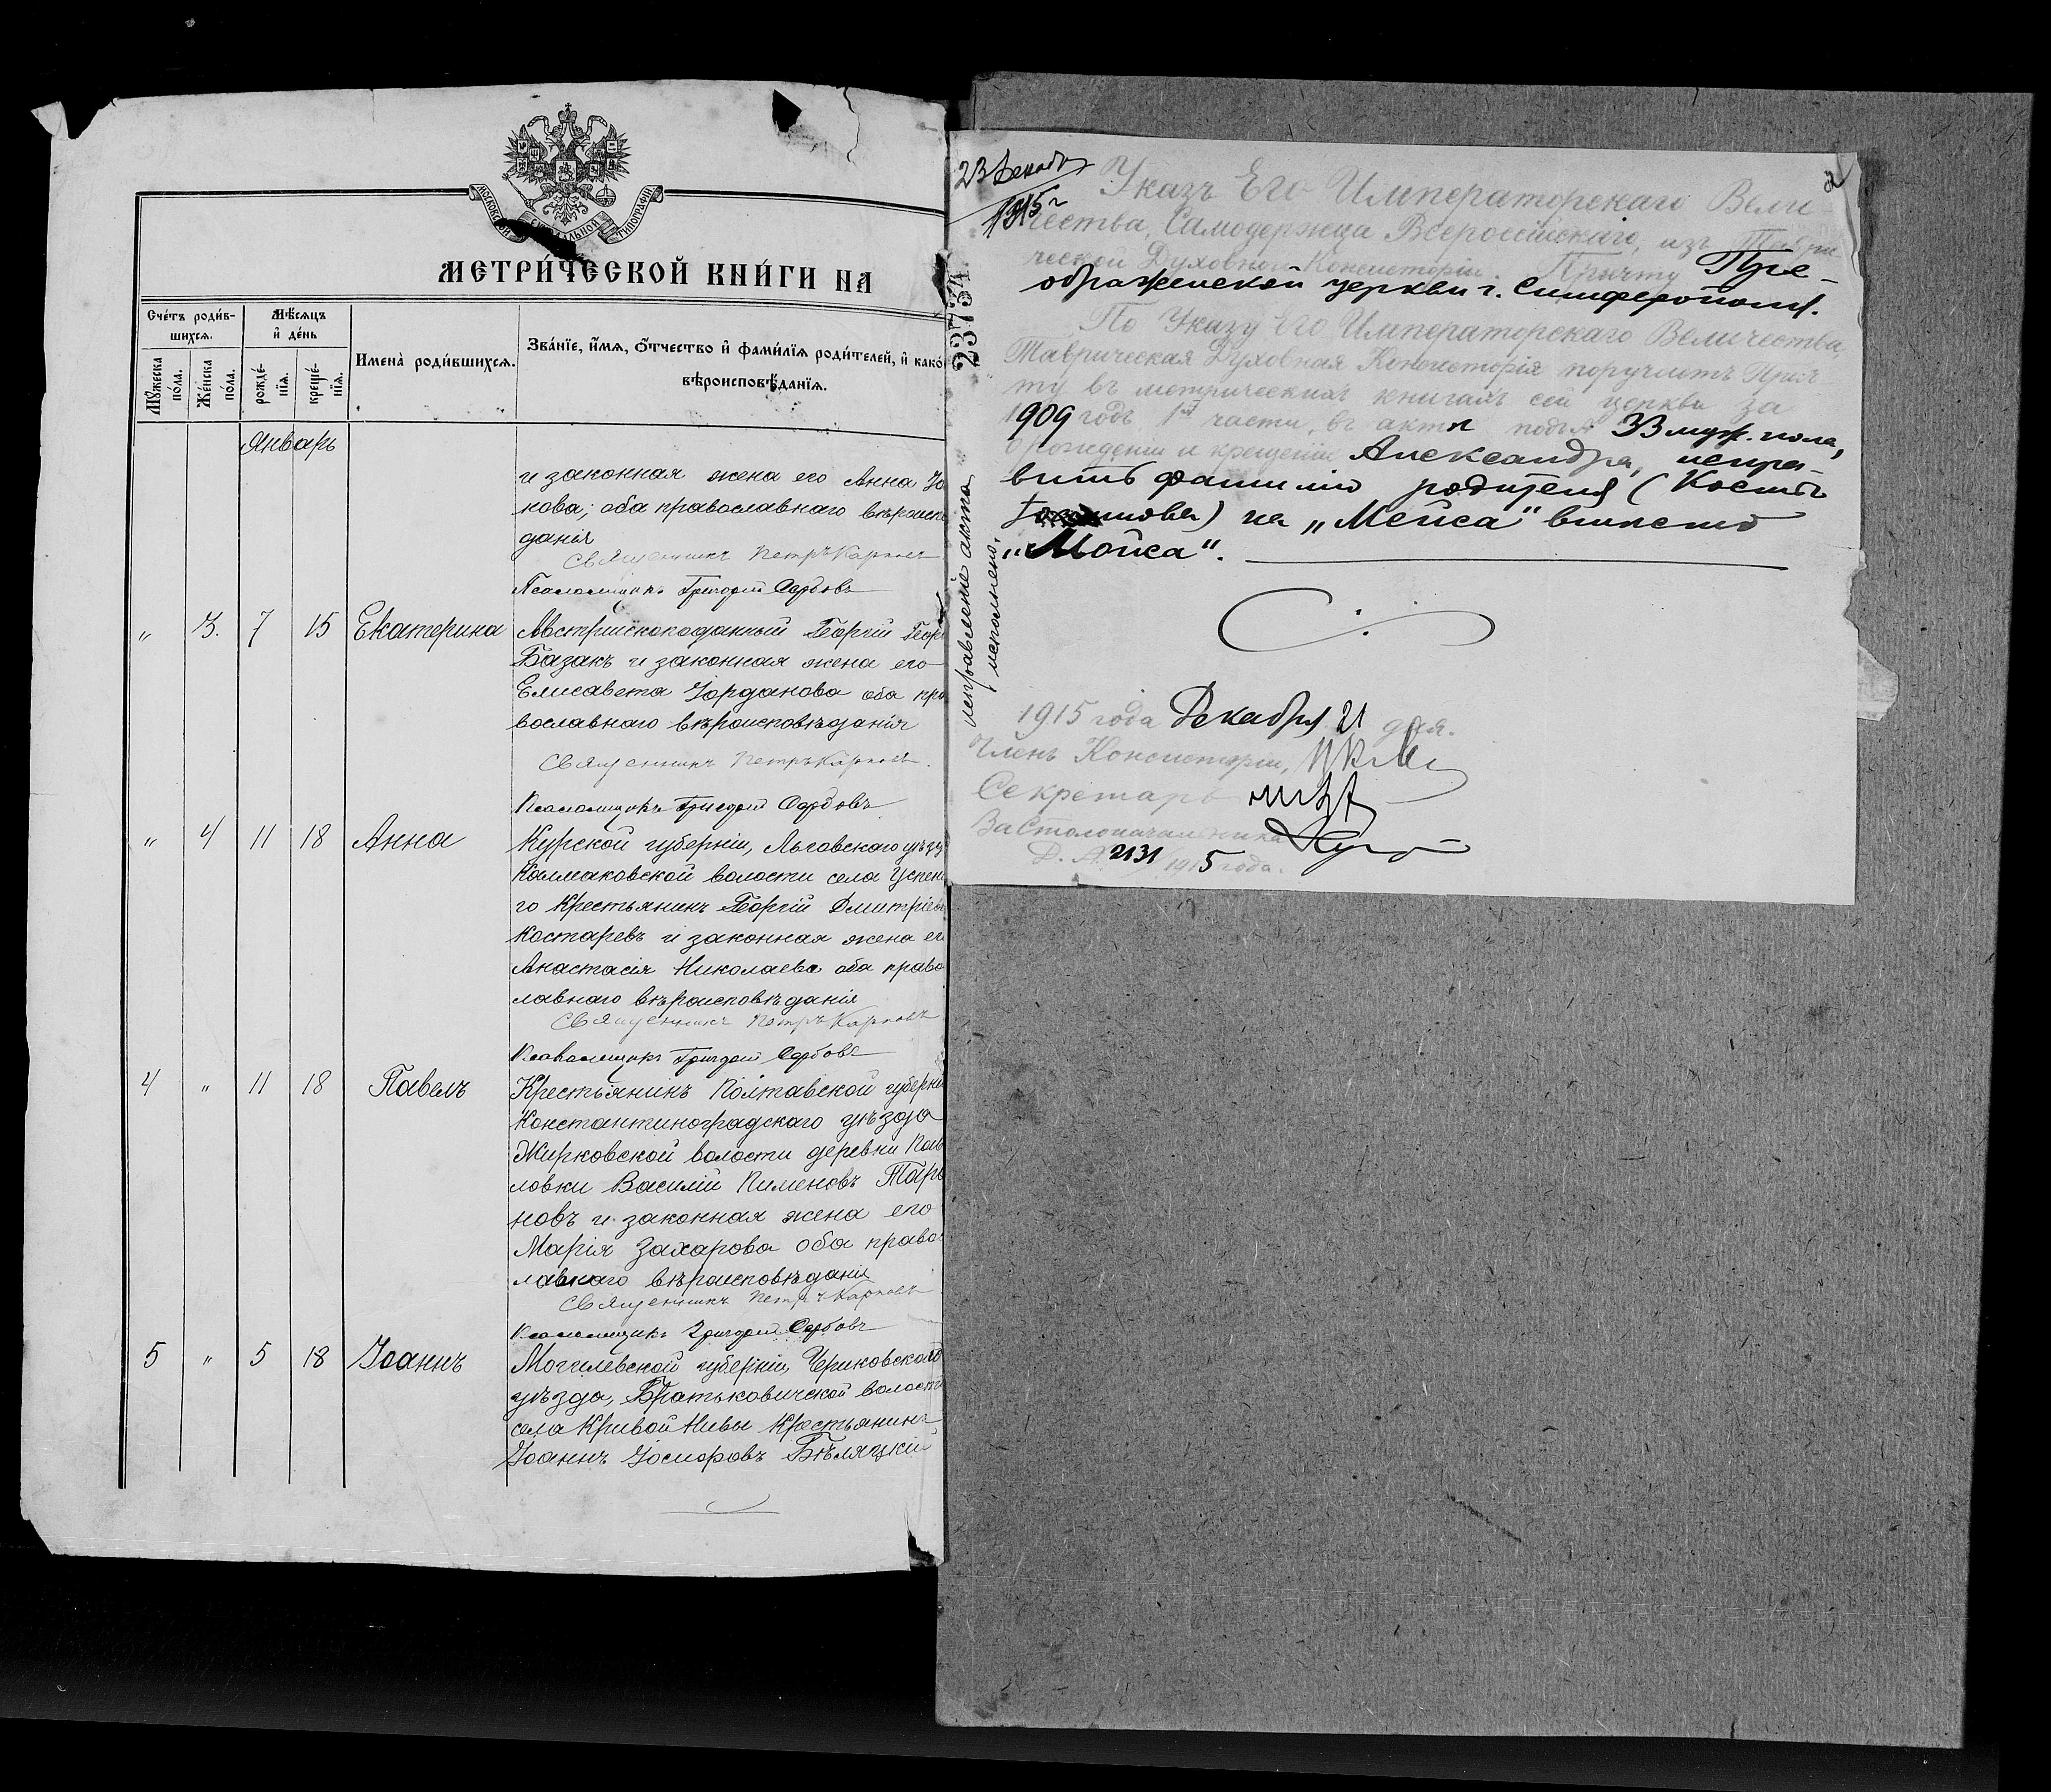 МОСКОВСКОЙ СѴНОДАЛЬНОЙ ТИПОГРАФІИ
МЕТРИ́ЧЕСКОЙ КНИ́ГИ НА
Сче́тъ роди́в-
шихся.
Мѣ́сяцъ
и҆ де́нь
Мꙋ́жеска
по́ла.
Же́нска
по́ла.
рожде́-
нїѧ.
креще́-
нїѧ.
Имена̀ роди́вшихсѧ.
Зва́нїе, и҆́мѧ, ѻ҆́тчество и҆ фами́лїѧ роди́телей, и҆ како
вѣроисповѣ́данїѧ.
Январь
и законная жена его Анна
нова; оба православнаго вѣроиспо
данія
Священникъ Петръ Карповъ
Псаломщикъ Григорій Сербовъ
" 3. 7 15 Екатерина Австрійскоподанный Георгій Геор
Базакъ и законная жена его
Елисавета Іорданова оба пра
вославнаго вѣроисповѣданія
Священникъ Петръ Карповъ.
Псаломщикъ Григорій Сербовъ
" 4 11 18 Анна Курской губерніи, Льговскаго уѣзд
Колмаковской волости села Успен
го Крестьянинъ Георгій Дмитріев
Костаревъ и законная жена ег
Анастасія Николаева оба право
лавнаго вѣроисповѣданія
Священникъ Петръ Карповъ
Псаломщикъ Григорій Сербовъ
4 " 11 18 Павелъ Крестьянинъ Полтавской губерні
Константиноградскаго уѣзда
Жирковской волости деревни Пав
ловки Василій Пименовъ
новъ и законная жена его
Марія Захарова оба право
лавнаго вѣроисповѣданія
Священникъ Петръ Карповъ
Псаломщикъ Григорій Сербовъ
5 " 5 18 Іоаннъ Могилевской губерніи, Чериковскаго
уѣзда, Братьковичской волост
села Кривой Нивы Крестьянинъ
Іоаннъ Бѣляцкій
23 Декабр
1915 г
Указъ Его Императорскаго Вели-
чества, Самодержца Всероссійскаго, изъ Таври-
ческой Духовной Консисторіи. Причту Пре-
ображенской церкви г. Симферополя.
По Указу Его Императорскаго Величества,
Таврическая Духовная Консисторія поручаетъ Прич-
ту въ метрическихъ книгахъ сей церкви за
1909 годъ 1й части, въ актѣ подъ № 33 муж. пола,
о рожденіи и крещеніи Александра, испра-
вить фамилію родителя
на „Мейса" вмѣсто
„Мойса".
23734.
исправленіе акта
исполнено.
1915 года Декабря 21 дня.
Членъ Консисторіи,
Секретарь
За Столоначальника
Д. № 2131/1915 года.
2